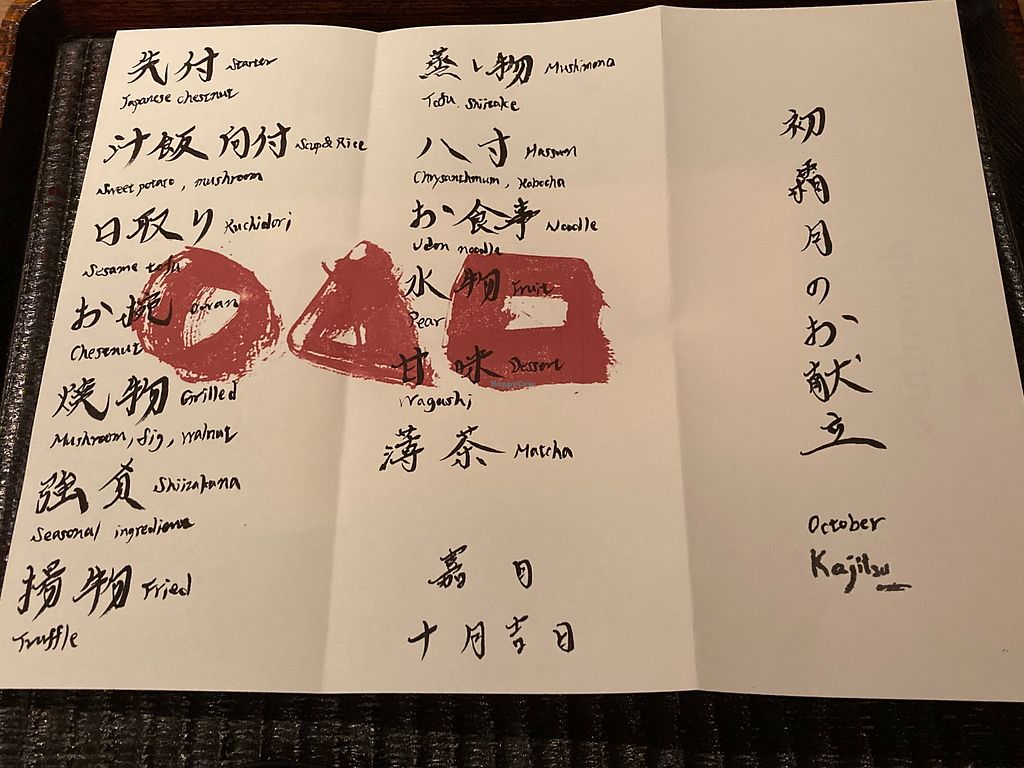 先付 Starter
Japanese chestnut
汁飯 向付 Soup & Rice
Sweet potato, mushroom
口取り Kuchidori
Sesame tofu
お椀 Owan
Chestnut
焼物 Grilled
Mushroom, fig, walnut
強肴 Shiizakana
Seasonal ingredients
揚物 Fried
Truffle
蒸し物 Mushimono
Tofu, Shiitake
八寸 Hassun
Chrysanthmum, Kabocha
お食事 Noodle
Udon noodle
水物 Fruit
Pear
甘味 Dessert
Wagashi
薄茶 Matcha
嘉日
十月吉日
初霜月のお献立
October
Kajitsu
HappyCow